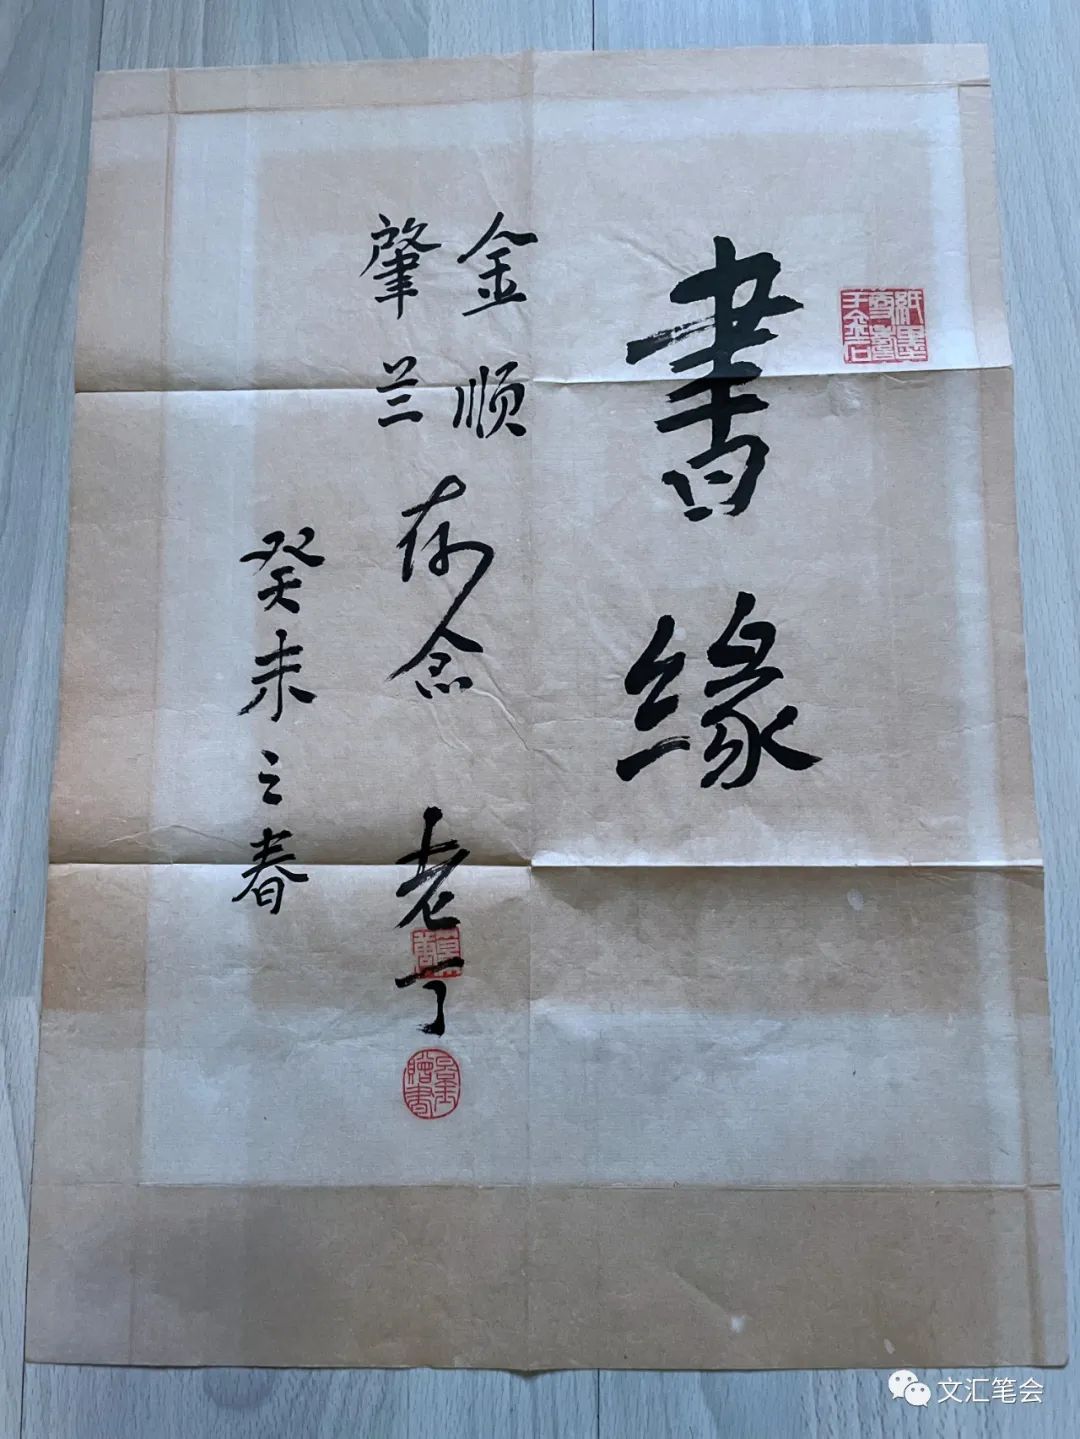 書缘
金顺
肇兰
存念 老丁
癸未之春
文汇笔会